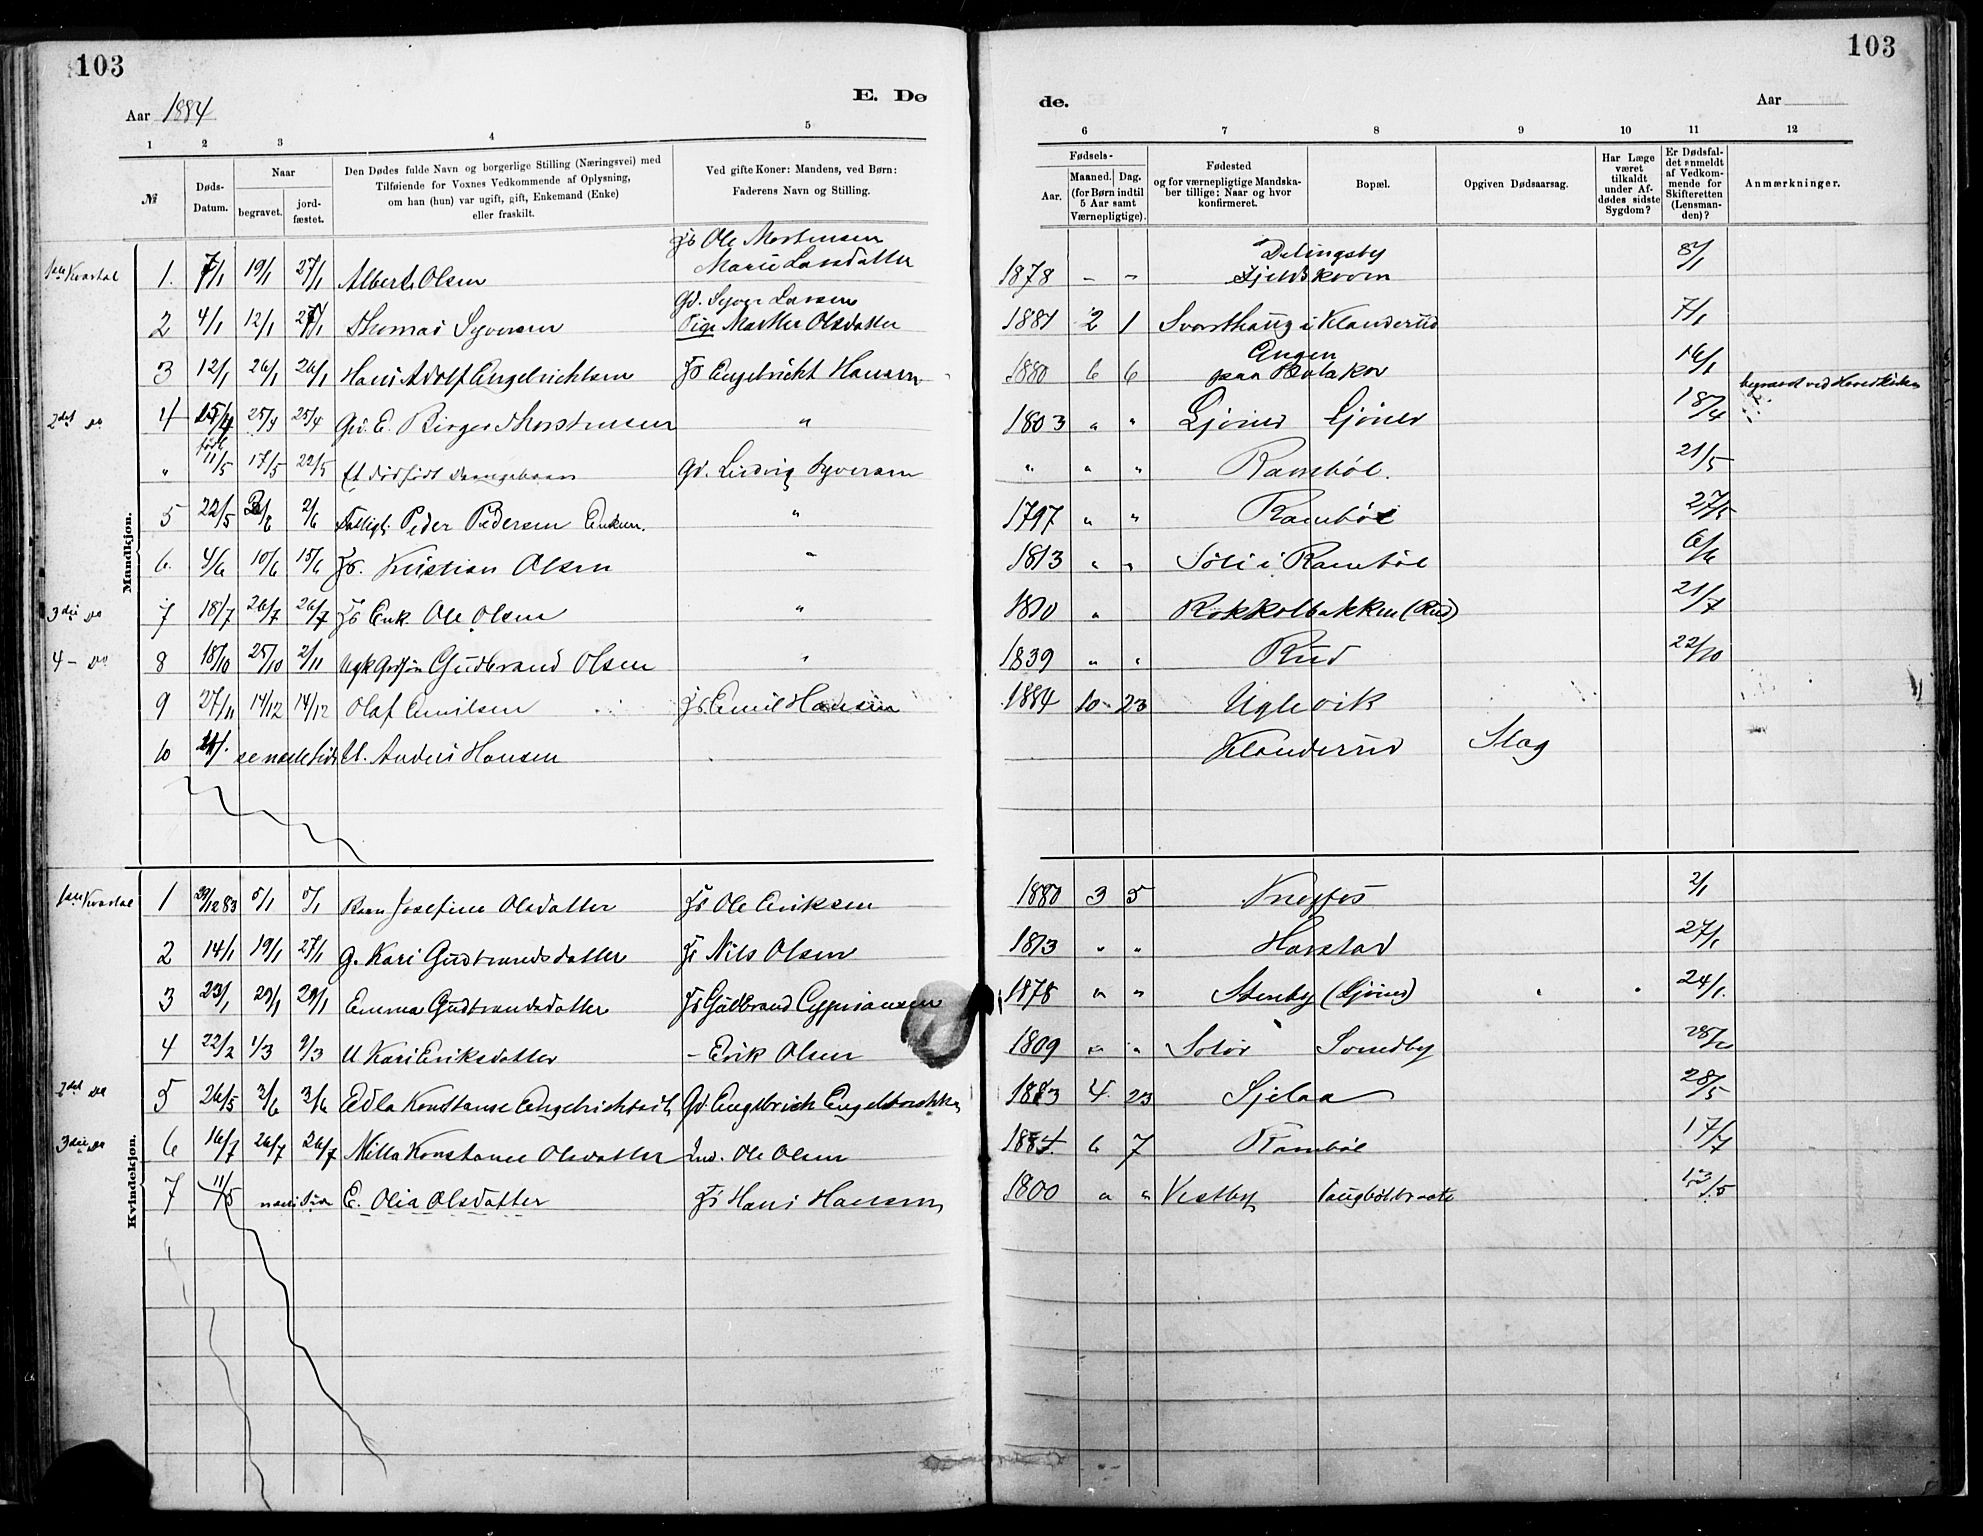 103
103
Aar 1884
E. Dø
de.
Aar
1 2 3 4 5 6 7 8 9 10 11 12
№
Døds-Datum.
Naar
begravet.
jord-fæstet.
Den Dødes fulde Navn og borgerlige Stilling (Næringsvei) med
Tilføiende for Voxnes Vedkommende af Oplysning,
om han (hun) var ugift, gift, Enkemand (Enke)
eller fraskilt.
Ved gifte Koner: Mandens, ved Børn:
Faderens Navn og Stilling.
Fødsels-
Aar.
Maaned. Dag.
(for Børn indtil
5 Aar samt
Værnepligtige).
Fødested
og for værnepligtige Mandska-
ber tillige: Naar og hvor
konfirmeret.
Bopæl.
Opgiven Dødsaarsag.
Har Læge
været
tilkaldt
under Af-
dødes sidste
Sygdom?
Er Dødsfal-
det anmeldt
af Vedkom-
mende for
Skifteretten
(Lensman-
den)?
Anmærkninger.
Mandkjøn.
1ste Kvartal 1. 7/1 19/1 27/1 Albert Olsen Fs Ole Mortensen Marie Larsdatter 1878 – – Delingsby 8/1
2 4/1 12/1 27/1 Thomas Syversen Gd. Syver Larsen Pige Marthe Olsdatter 1881 2 1 Svarthaug i Klanderud 7/1
3 12/1 26/1 26/1 Hans Adolf Engebrichtsen Fs Engebricht Hansen 1880 6 6 Engen paa 16/1
2det do 4 15/4 25/4 25/4 Gd. E. Birger Thorstensen " 1803 " " Gjøner Gjøner 18/4 begravet ved
" født 11/5 17/5 22/5 Et dødfødt Drengebarn Gd. Ludvig Syversen " " " Rambøl. 21/5
5 22/5 2/6 2/6 Fattigl. Peder Pedersen Enkem. " 1797 " " Rambøl 27/5
6. 4/6 10/6 15/6 Fs. Kristian Olsen " 1813 " " Søli i Rambøl 6/6
3die do 7 18/7 26/7 26/7 Fs Enk. Ole Olsen " 1810 " Kokkolbakken (Rud) 21/7
4 – do 8 18/10 25/10 2/11 Ugk Gudbrand Olsen " 1839 " " Rud 22/10
9 27/11 14/12 14/12 Olaf Emilsen Fs Emil Hansen 1884 10 23 Uglevik
10 se næste Side U. Anders Hansen Klanderud Slag
Kvindekjøn.
1ste Kvartal 1 29/12 83 5/1 5/1 Barn Josefine Olsdatter Fs Ole Eriksen 1880 3 5 2/1
2 14/1 19/1 27/1 G. Kari Gudbrandsdatter Fs Nils Olsen 1813 " " Harstad 27/1
3 23/1 29/1 29/1 Emma Gudbrandsdatter Fs Gudbrand Cyprianusen 1878 " " Stenby (Gjøner) 24/1.
4 22/2 1/3 9/3 U Kari Eriksdatter – Erik Olsen 1809 " " Solør Sundby
2det do 5 26/5 3/6 3/6 Edla Konstanse Engebrichtsdt Gd. Engebrich 1883 4. 23 Sjelaa 28/5
3die do 6 16/7 26/7 26/7 Milla Konstance Olsdatter Ind. Ole Olsen 1884. 6 7 Rambøl 17/7
7 11/5 næste Side E. Olia Olsdatter Fs Hans Hansen 1800 " " Vestby 13/5